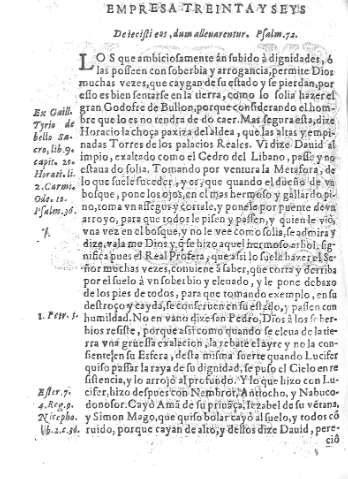 EMPRESA TREINTA Y SEYS
Deiecisti eos, dum alleuarentur. Psalm. 72.
LOS que ambiciosamente án subido à dignidades, ô
las posseen con soberbia y arrogancia, permite Dios
muchas vezes, que caygan de su estado y se pierdan, por
esso es bien sentarse en la tierra, como lo solia hazer el
gran Godofre de Bullon, porque considerando el hom-
bre que lo es no tendra de do caer. Mas segura esta, dize
Horacio la choça paxiza del aldea, que las altas y empi-
nadas Torres de los palacios Reales. Vi dize Dauid al
impio, exaltado como el Cedro del Libano, passe y no
estaua do solia. Tomando por ventura la Metafora, de
lo que suele suceder, y es, que quando el dueño de vn
bosque, pone los ojos en el mas hermoso y gallardo pi-
no, toma vna assegur y cortale, y ponele por puente de vn
arroyo, para que todos le pisen y passen, y quien le vió
vna vez en el bosque, y no le vee como solia, se admira y
dize, vala me Dios y q̃ se hizo aquel hermoso arbol. sig-
nifica pues el Real Profeta, que assi lo suele hazer el Se-
ñor muchas vezes, conuiene à saber, que corta y derriba
por el suelo à vn soberbio y eleuado, y le pone debaxo
de los pies de todos, para que tomando exemplo, en su
destroço y cayda, se conseruen en su estado, y passen con
humildad. No en vano dize san Pedro, Dios à los sober-
bios resiste, porque assi como quando se eleua de la tie-
rra vna gruessa exalacion, la rebate el ayre y no la con-
siente, en su Esfera, desta misma suerte quando Lucifer
quiso passar la raya de su dignidad, se puso el Cielo en re
sistencia, y lo arrojò al profundo. Y lo que hizo con Lu-
cifer, hizo despues con Nembrot, Antiocho, y Nabuco-
donosor. Cayò Amã de su priuãça, Iezabel de su vẽtana,
y Simon Mago, que quiso bolar cayò al suelo, y todos cõ
ruido, porque cayan de alto, y dellos dize Dauid, pere-
ciò
Ex Guill.
Tyrio de
bello Sa-
cro, lib. 9.
capit. 20.
Horati. li.
2. Carmi.
Ode. 10.
Psalm. 36.
1. Petr. 5.
Ester. 7.
4. Reg. 9.
Nicepho.
lib. 2. c. 36.